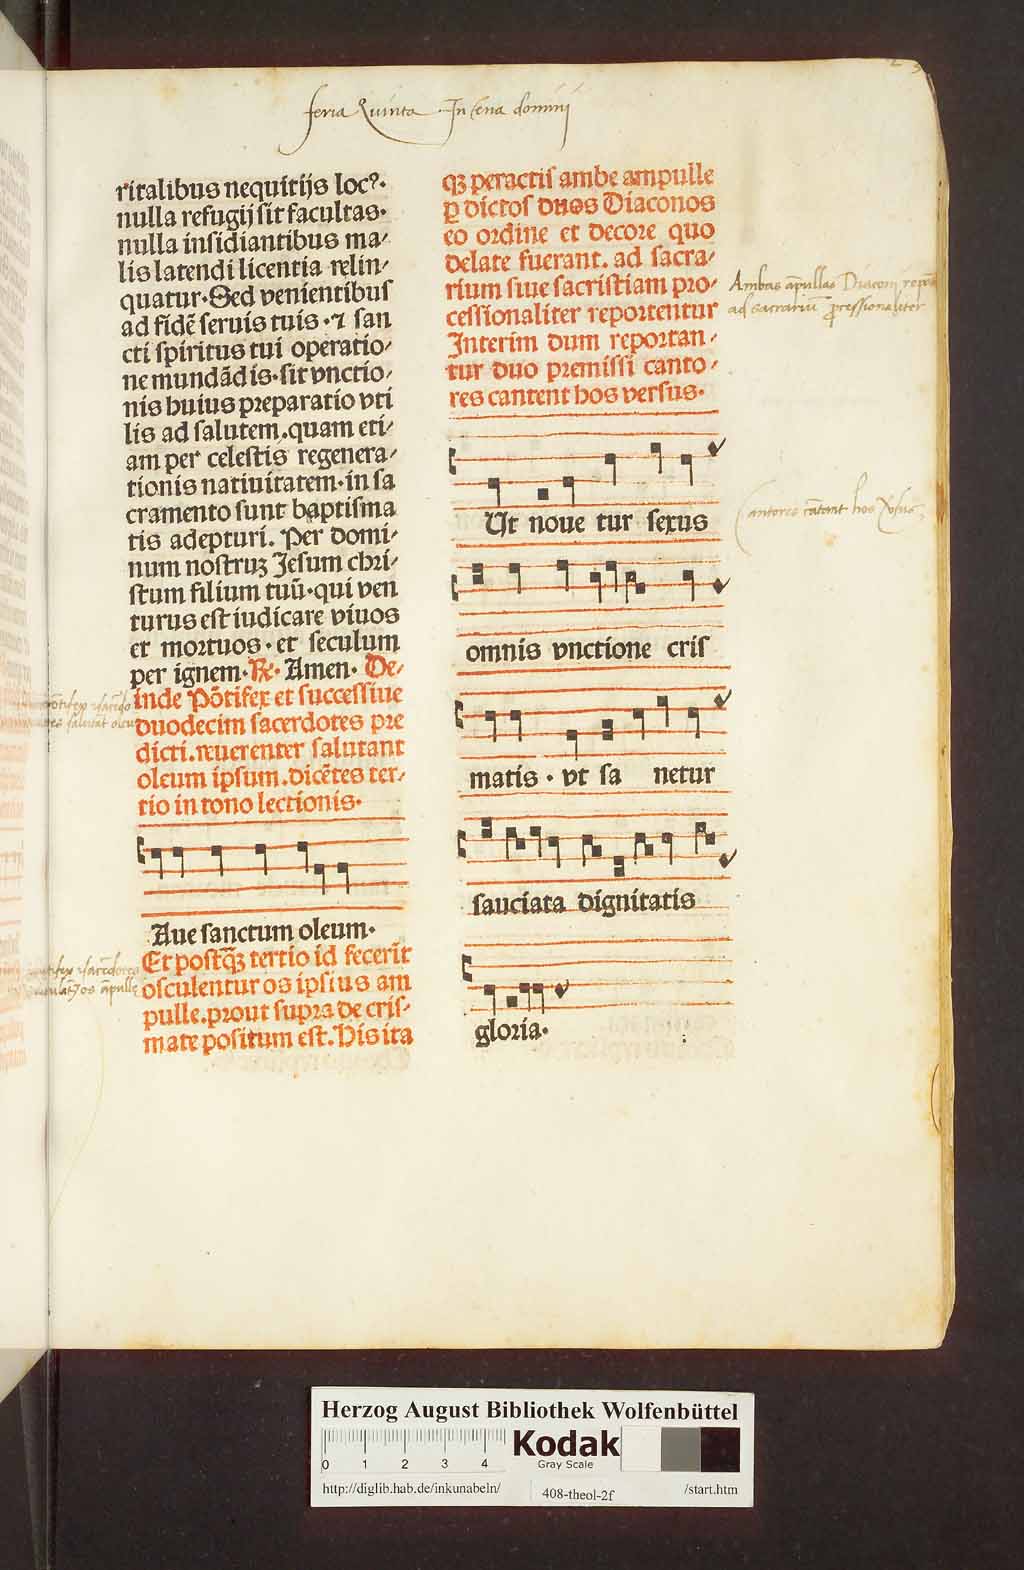 feria Quinta In cena domini
ritalibus nequitijs locꝰ.
nulla refugij sit facultas.
nulla insidiantibus ma⸗
lis latendi licentia relin⸗
quatur. Sed venientibus
ad fidē seruis tuis. ⁊ san
cti spiritus tui operatio⸗
ne mundādis. sit vnctio⸗
nis huius preparatio vti
lis ad salutem. quam eti⸗
am per celestis regenera⸗
tionis natiuitatem. in sa
cramento sunt baptisma
tis adepturi. Per domi⸗
num nostruꝫ Jesum chri⸗
stum filium tuū. qui ven
turus est iudicare viuos
et mortuos. et seculum
per ignem. ℟. Amen. De⸗
inde Pōtifex et successiue
duodecim sacerdotes pre
dicti. reuerenter salutant
oleum ipsum. dicētes ter⸗
tio in tono lectionis.
Aue sanctum oleum.
Et postꝙꝫ tertio id fecerīt
osculentur os ipsius am
pulle. prout supra de cris⸗
mate positum est. His ita
qꝫ peractis ambe ampulle
ꝑ dictos duos Diaconos
eo ordine et decore quo
delate fuerant. ad sacra⸗
rium siue sacristiam pro⸗
cessionaliter reportentur
Interim dum reportan⸗
tur duo premissi canto⸗
res cantent hos versus.
Ut noue tur sexus
omnis vnctione cris
matis. vt sa netur
sauciata dignitatis
gloria.
Ambas āpullas Diaconi
ad sacrariū processionaliter
Cantores cātent hos
Herzog August Bibliothek Wolfenbüttel
0 1 2 3 4
Kodak
Gray Scale
http://diglib.hab.de/inkunabeln/ 408-theol-2f /start.htm